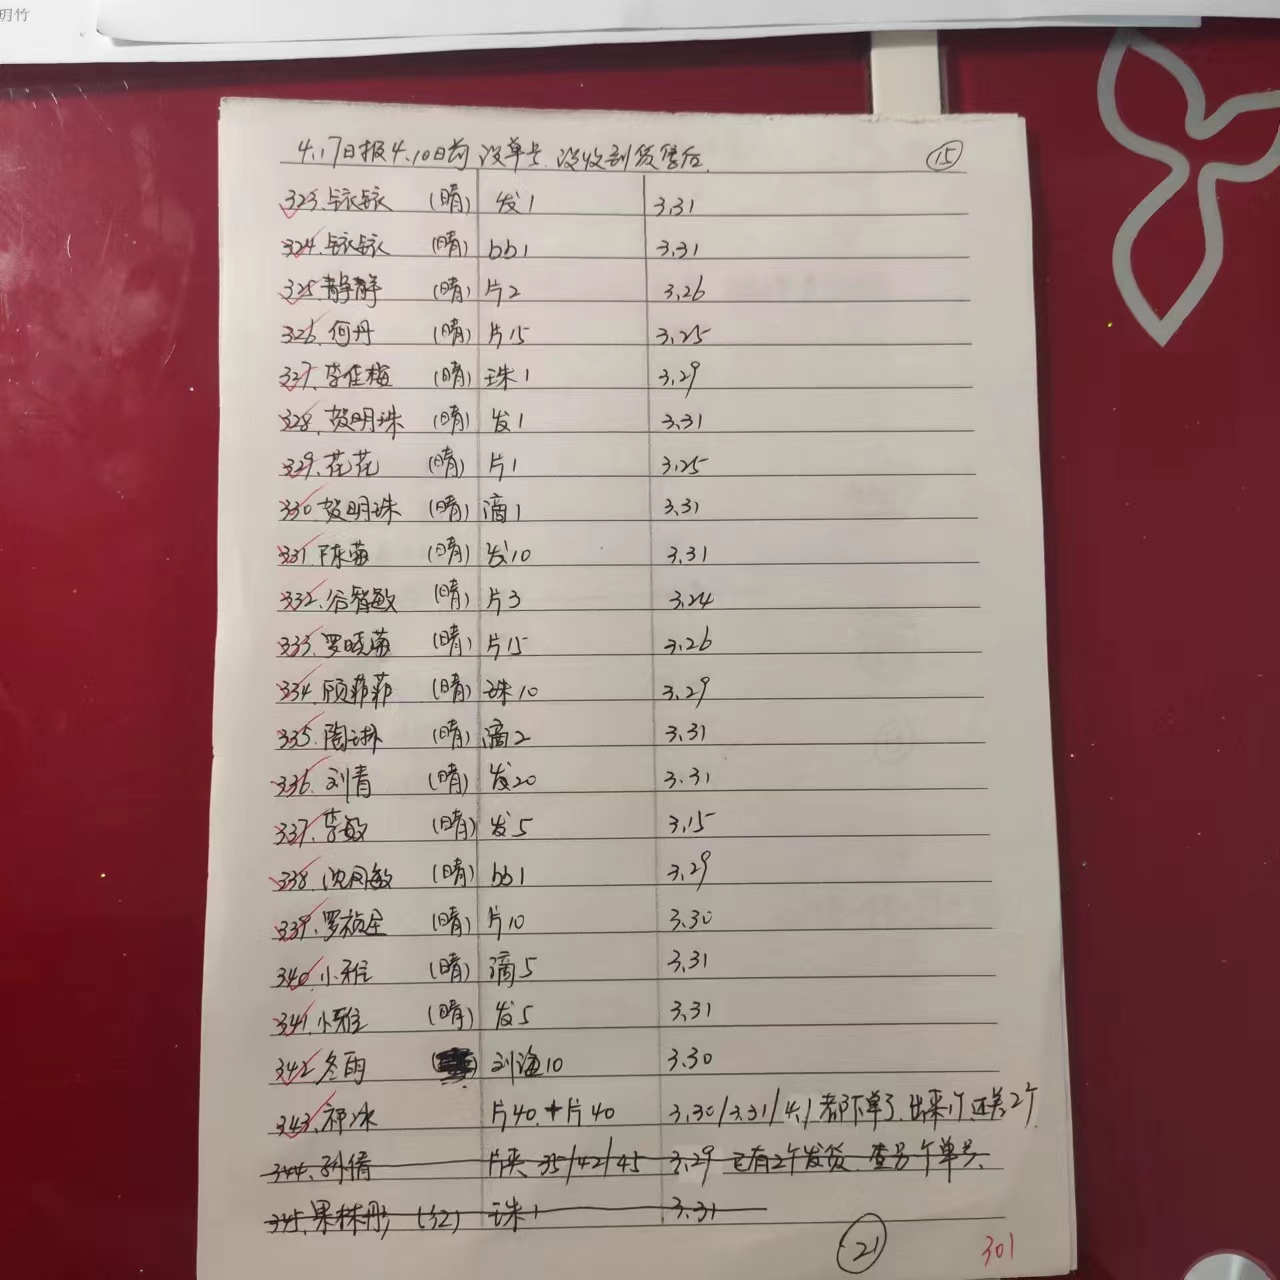 玥竹
4.17日报4.10日前没单号.没收到货售后. 15
323.钱钱 (晴) 发1 3.31
324.钱钱 (晴) bb1 3.31
325.静静 (晴) 片2 3.26
326.何丹 (晴) 片15 3.25
327.李佳梅 (晴) 珠1 3.29
328.贺明珠 (晴) 发1 3.31
329.花花 (晴) 片1 3.25
330.贺明珠 (晴) 滴1 3.31
331.陈茵 (晴) 发10 3.31
332.谷智敏 (晴) 片3 3.24
333.罗晓菊 (晴) 片15 3.26
334.顾菲菲 (晴) 珠10 3.29
335.陶琳 (晴) 滴2 3.31
336.刘青 (晴) 发20 3.31
337.李敏 (晴) 发5 3.15
338.沈凤敏 (晴) bb1 3.29
339.罗祯全 (晴) 片10 3.30
340.小雅 (晴) 滴5 3.31
341.小雅 (晴) 发5 3.31
342.冬雨 刘海10 3.30
343.祁冰 片40.+片40 3.30/3.31/4.1都下单了.出来1个.还差2个
344.孙倩 片夹 35/42/45 3.29 已有2个发货.查另个单号.
345.果林彤 (32) 珠1 3.31
21 301